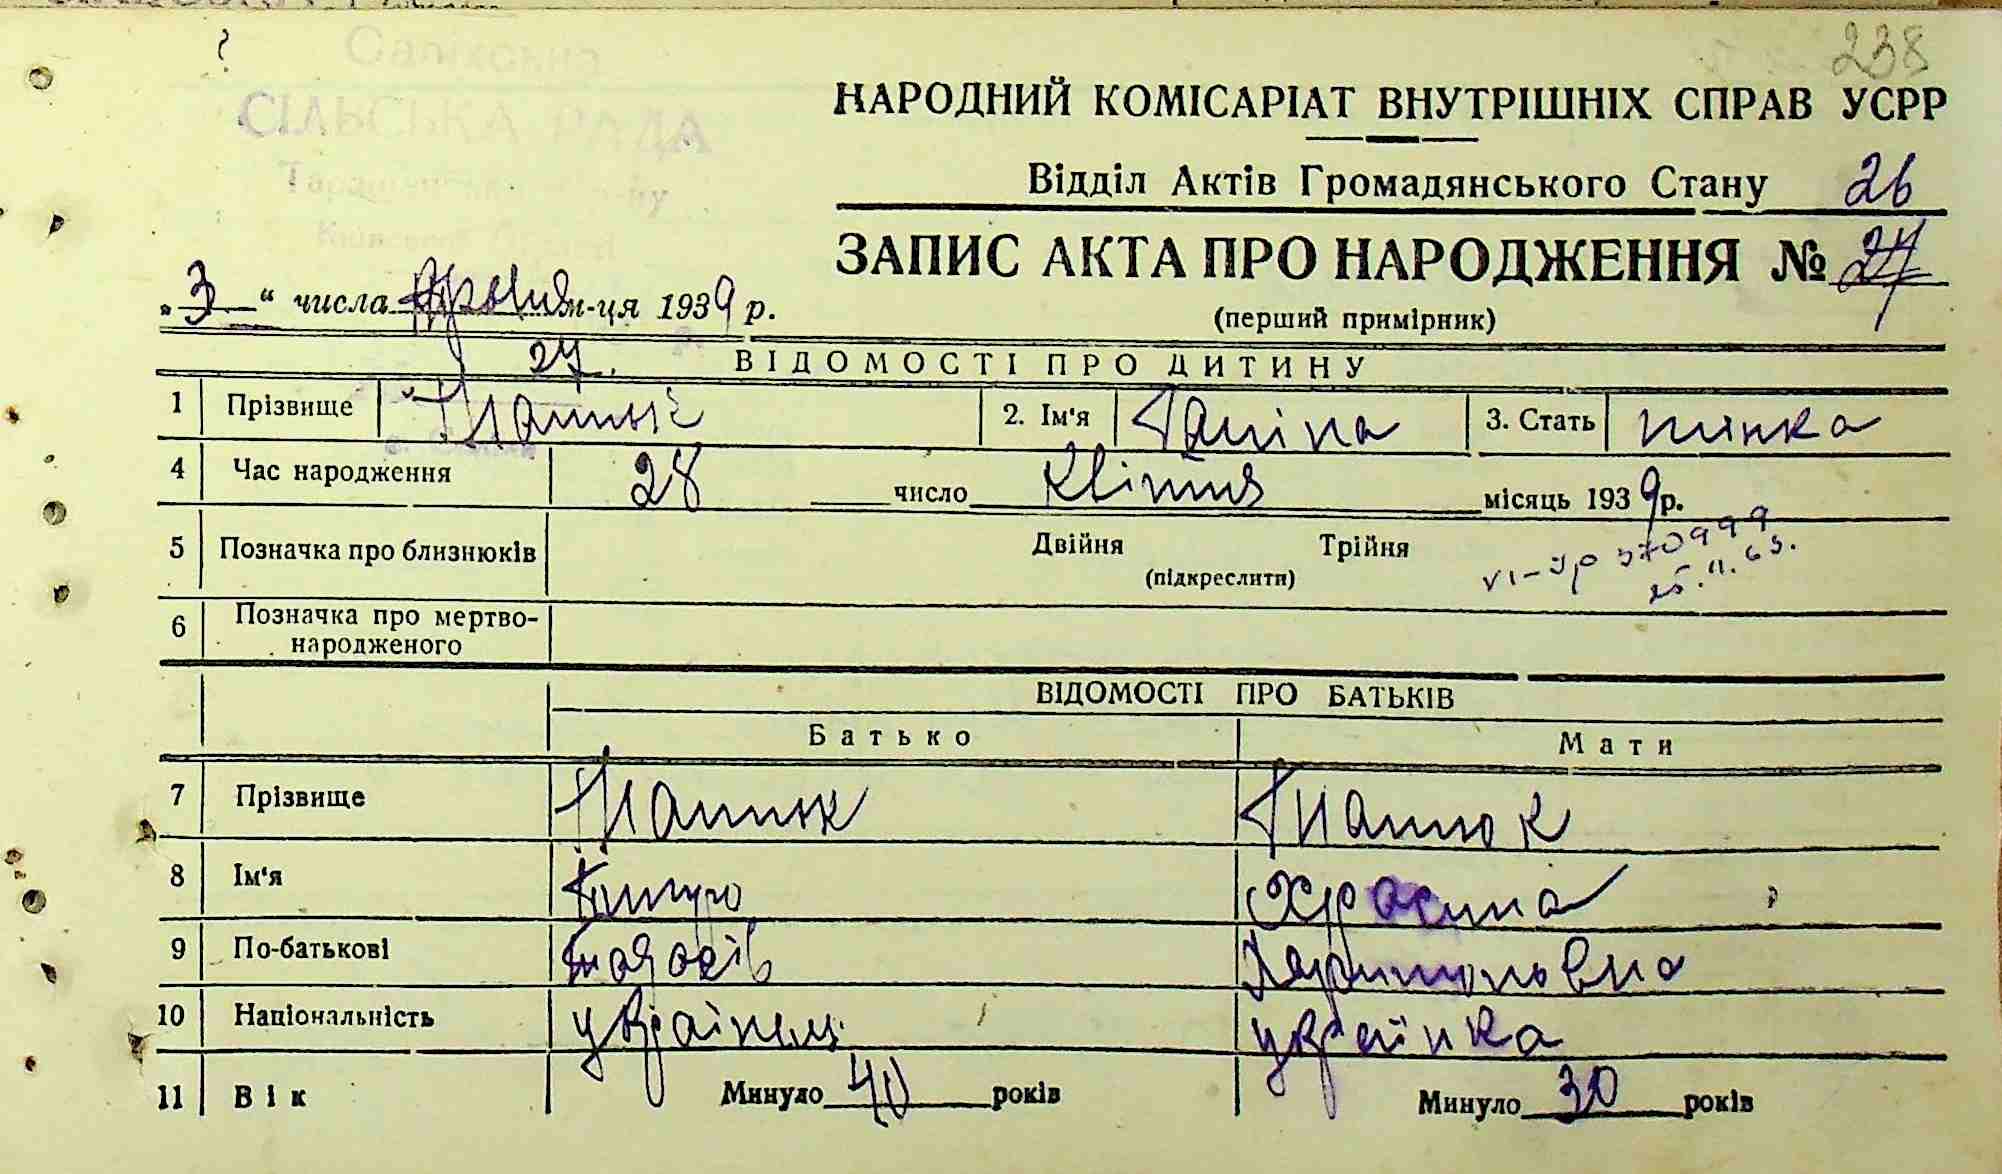 238
СІЛЬСЬКА РАДА
НАРОДНИЙ КОМІСАРІАТ ВНУТРІШНІХ СПРАВ УСРР
Відділ Актів Громадянського Стану 26
ЗАПИС АКТА ПРО НАРОДЖЕННЯ № 27
„3“ числа м-ця 1939 р.
(перший примірник)
27.
ВІДОМОСТІ ПРО ДИТИНУ
1 Прізвище 2. Ім'я Ганна 3. Стать жінка
4 Час народження 28 число Квітня місяць 1939 р.
5 Позначка про близнюків Двійня Трійня
(підкреслити)
VI-УР 370999
25.11.63.
6 Позначка про мертво-
народженого
ВІДОМОСТІ ПРО БАТЬКІВ
Батько Мати
7 Прізвище
8 Ім'я
9 По-батькові
10 Національність українець українка
11 Вік Минуло 40 років Минуло 30 років